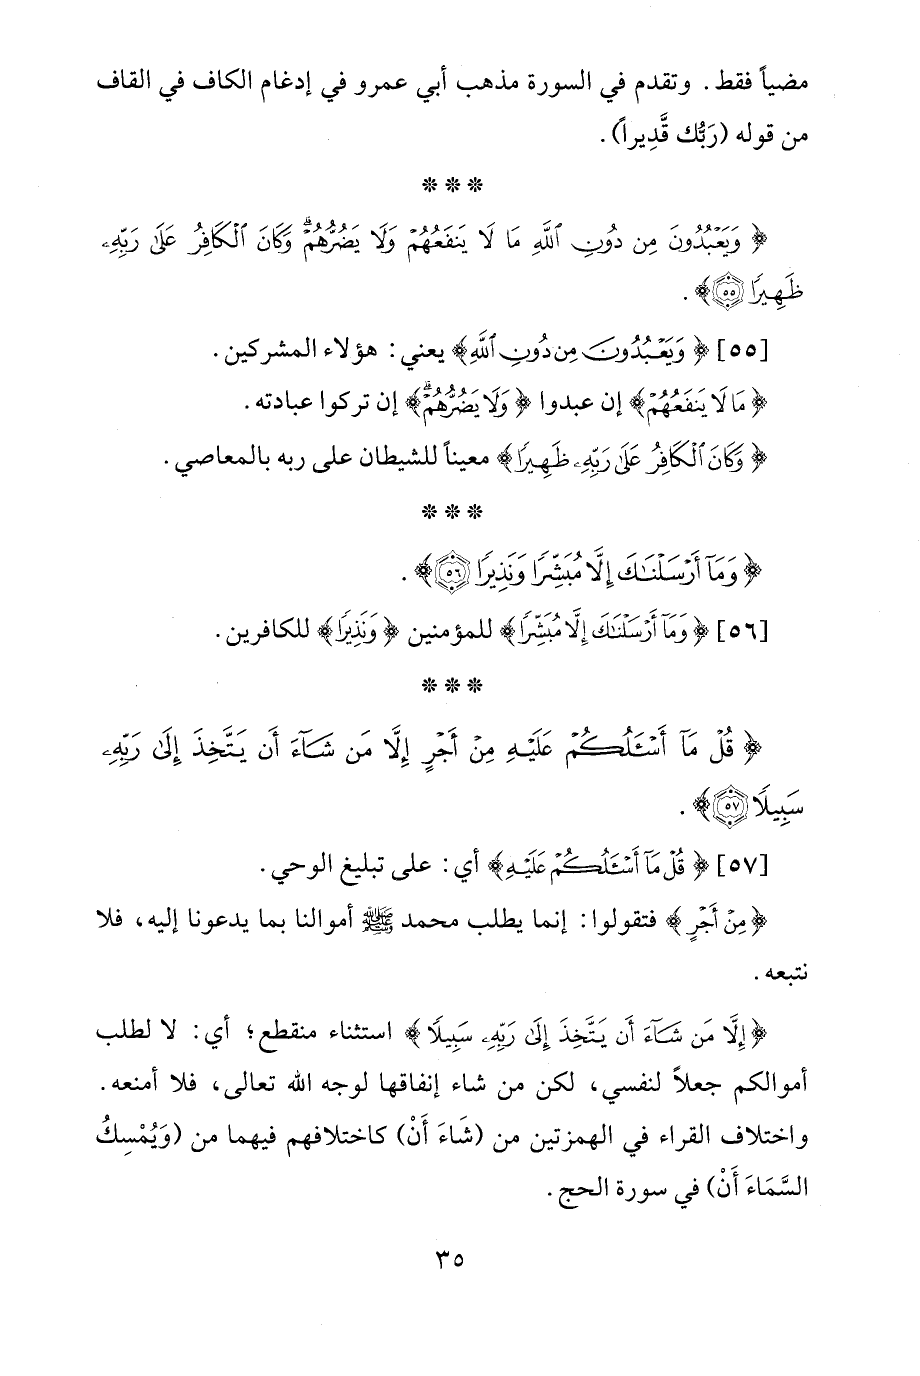 مضياً فقط. وتقدم في السورة مذهب أبي عمرو في إدغام الكاف في القاف
من قوله (رَبُّك قَّدِيراً).
* * *
﴿ وَيَعْبُدُونَ مِن دُونِ ٱللَّهِ مَا لَا يَنفَعُهُمْ وَلَا يَضُرُّهُمْ ۗ وَكَانَ ٱلْكَافِرُ عَلَىٰ رَبِّهِۦ
ظَهِيرًا ﴿٥٥﴾ .
[٥٥] ﴿ وَيَعْبُدُونَ مِن دُونِ ٱللَّهِ﴾ يعني: هؤلاء المشركين.
﴿مَا لَا يَنفَعُهُمْ﴾ إن عبدوا ﴿ وَلَا يَضُرُّهُمْ ۗ﴾ إن تركوا عبادته.
﴿ وَكَانَ ٱلْكَافِرُ عَلَىٰ رَبِّهِۦ ظَهِيرًا﴾ معيناً للشيطان على ربه بالمعاصي.
* * *
﴿ وَمَآ أَرْسَلْنَٰكَ إِلَّا مُبَشِّرًا وَنَذِيرًا ﴿٥٦﴾ .
[٥٦] ﴿ وَمَآ أَرْسَلْنَٰكَ إِلَّا مُبَشِّرًا﴾ للمؤمنين ﴿ وَنَذِيرًا﴾ للكافرين.
* * *
﴿ قُلْ مَآ أَسْـَٔلُكُمْ عَلَيْهِ مِنْ أَجْرٍ إِلَّا مَن شَآءَ أَن يَتَّخِذَ إِلَىٰ رَبِّهِۦ
سَبِيلًا ﴿٥٧﴾ .
[٥٧] ﴿ قُلْ مَآ أَسْـَٔلُكُمْ عَلَيْهِ﴾ أي: على تبليغ الوحي.
﴿مِنْ أَجْرٍ﴾ فتقولوا: إنما يطلب محمد ﷺ أموالنا بما يدعونا إليه، فلا
نتبعه.
﴿إِلَّا مَن شَآءَ أَن يَتَّخِذَ إِلَىٰ رَبِّهِۦ سَبِيلًا﴾ استثناء منقطع؛ أي: لا لطلب
أموالكم جعلاً لنفسي، لكن من شاء إنفاقها لوجه الله تعالى، فلا أمنعه.
واختلاف القراء في الهمزتين من (شَاءَ أَنْ) كاختلافهم فيهما من (وَيُمْسِكُ
السَّمَاءَ أَنْ) في سورة الحج.
٣٥